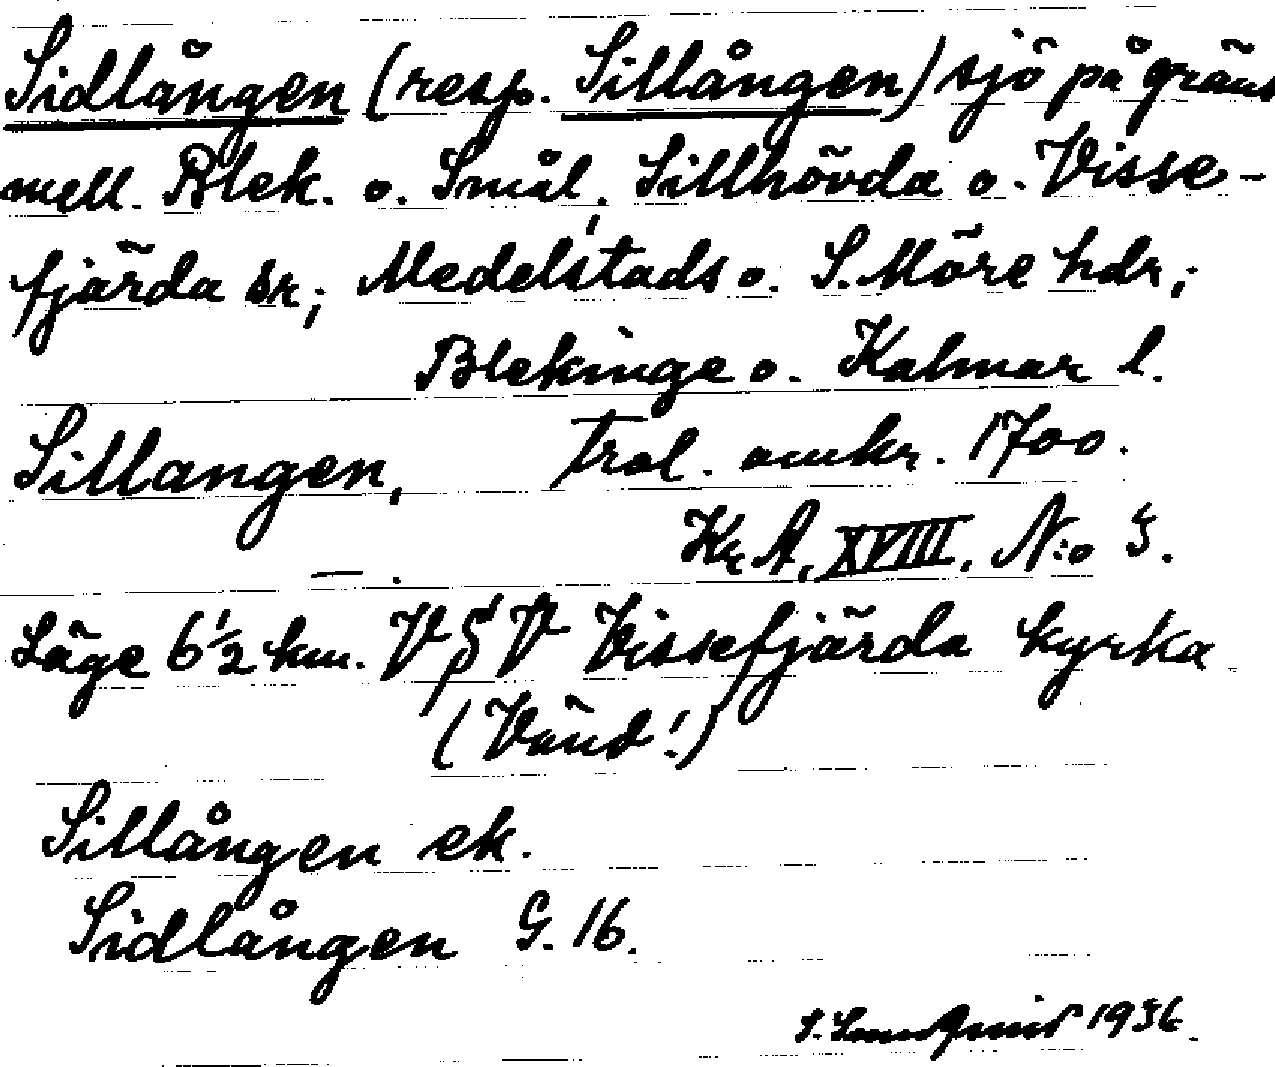 Sidlången (resp. Sillången) sjö på gräns
mell. Blek. o. Smål., Sillhövda o. Visse-
fjärda sr; Medelstads o. S. Möre hdr;
Blekinge o. Kalmar l.
Sillangen, Trol. omkr. 1700.
Kr. A. XVIII. N:o 5.
—.
Läge 6 1/2 km. V Vissefjärda kyrka
(Vänd!)
Sillången ek.
Sidlången G. 16.
1936.